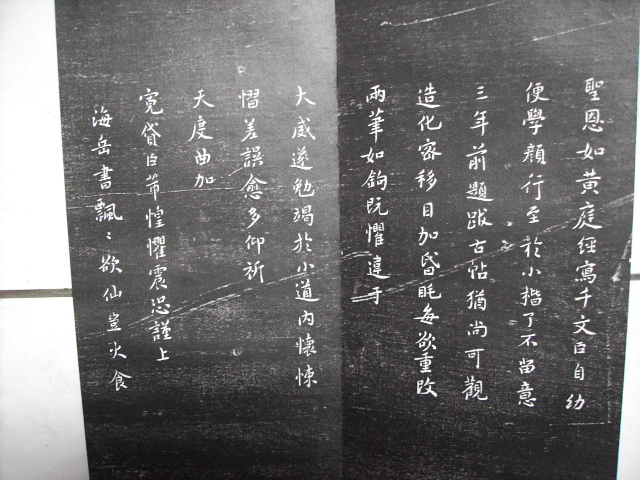 聖恩如黃庭經寫千文臣自幼
便學顏行至於小揩了不留意
三年前題跋古帖猶尚可觀
造化密移目加昏眊每欲重改
兩筆如鉤既懼違于
大威遂勉竭於小道內懷悚
慴差誤愈多仰祈
天度曲加
寬貸臣芾惶懼震恐謹上
海岳書飄〻欲仙豈火食